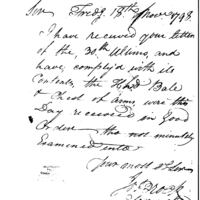 Sir Fredg. 18th Novr 1748.
I have received your letter
of the, 30th Ultimo, and
have comply'd with its
Contents, the Hhd Bale
& Chest of Arms were this
Day received in Good
Order tho not minutely
Examened into
your most